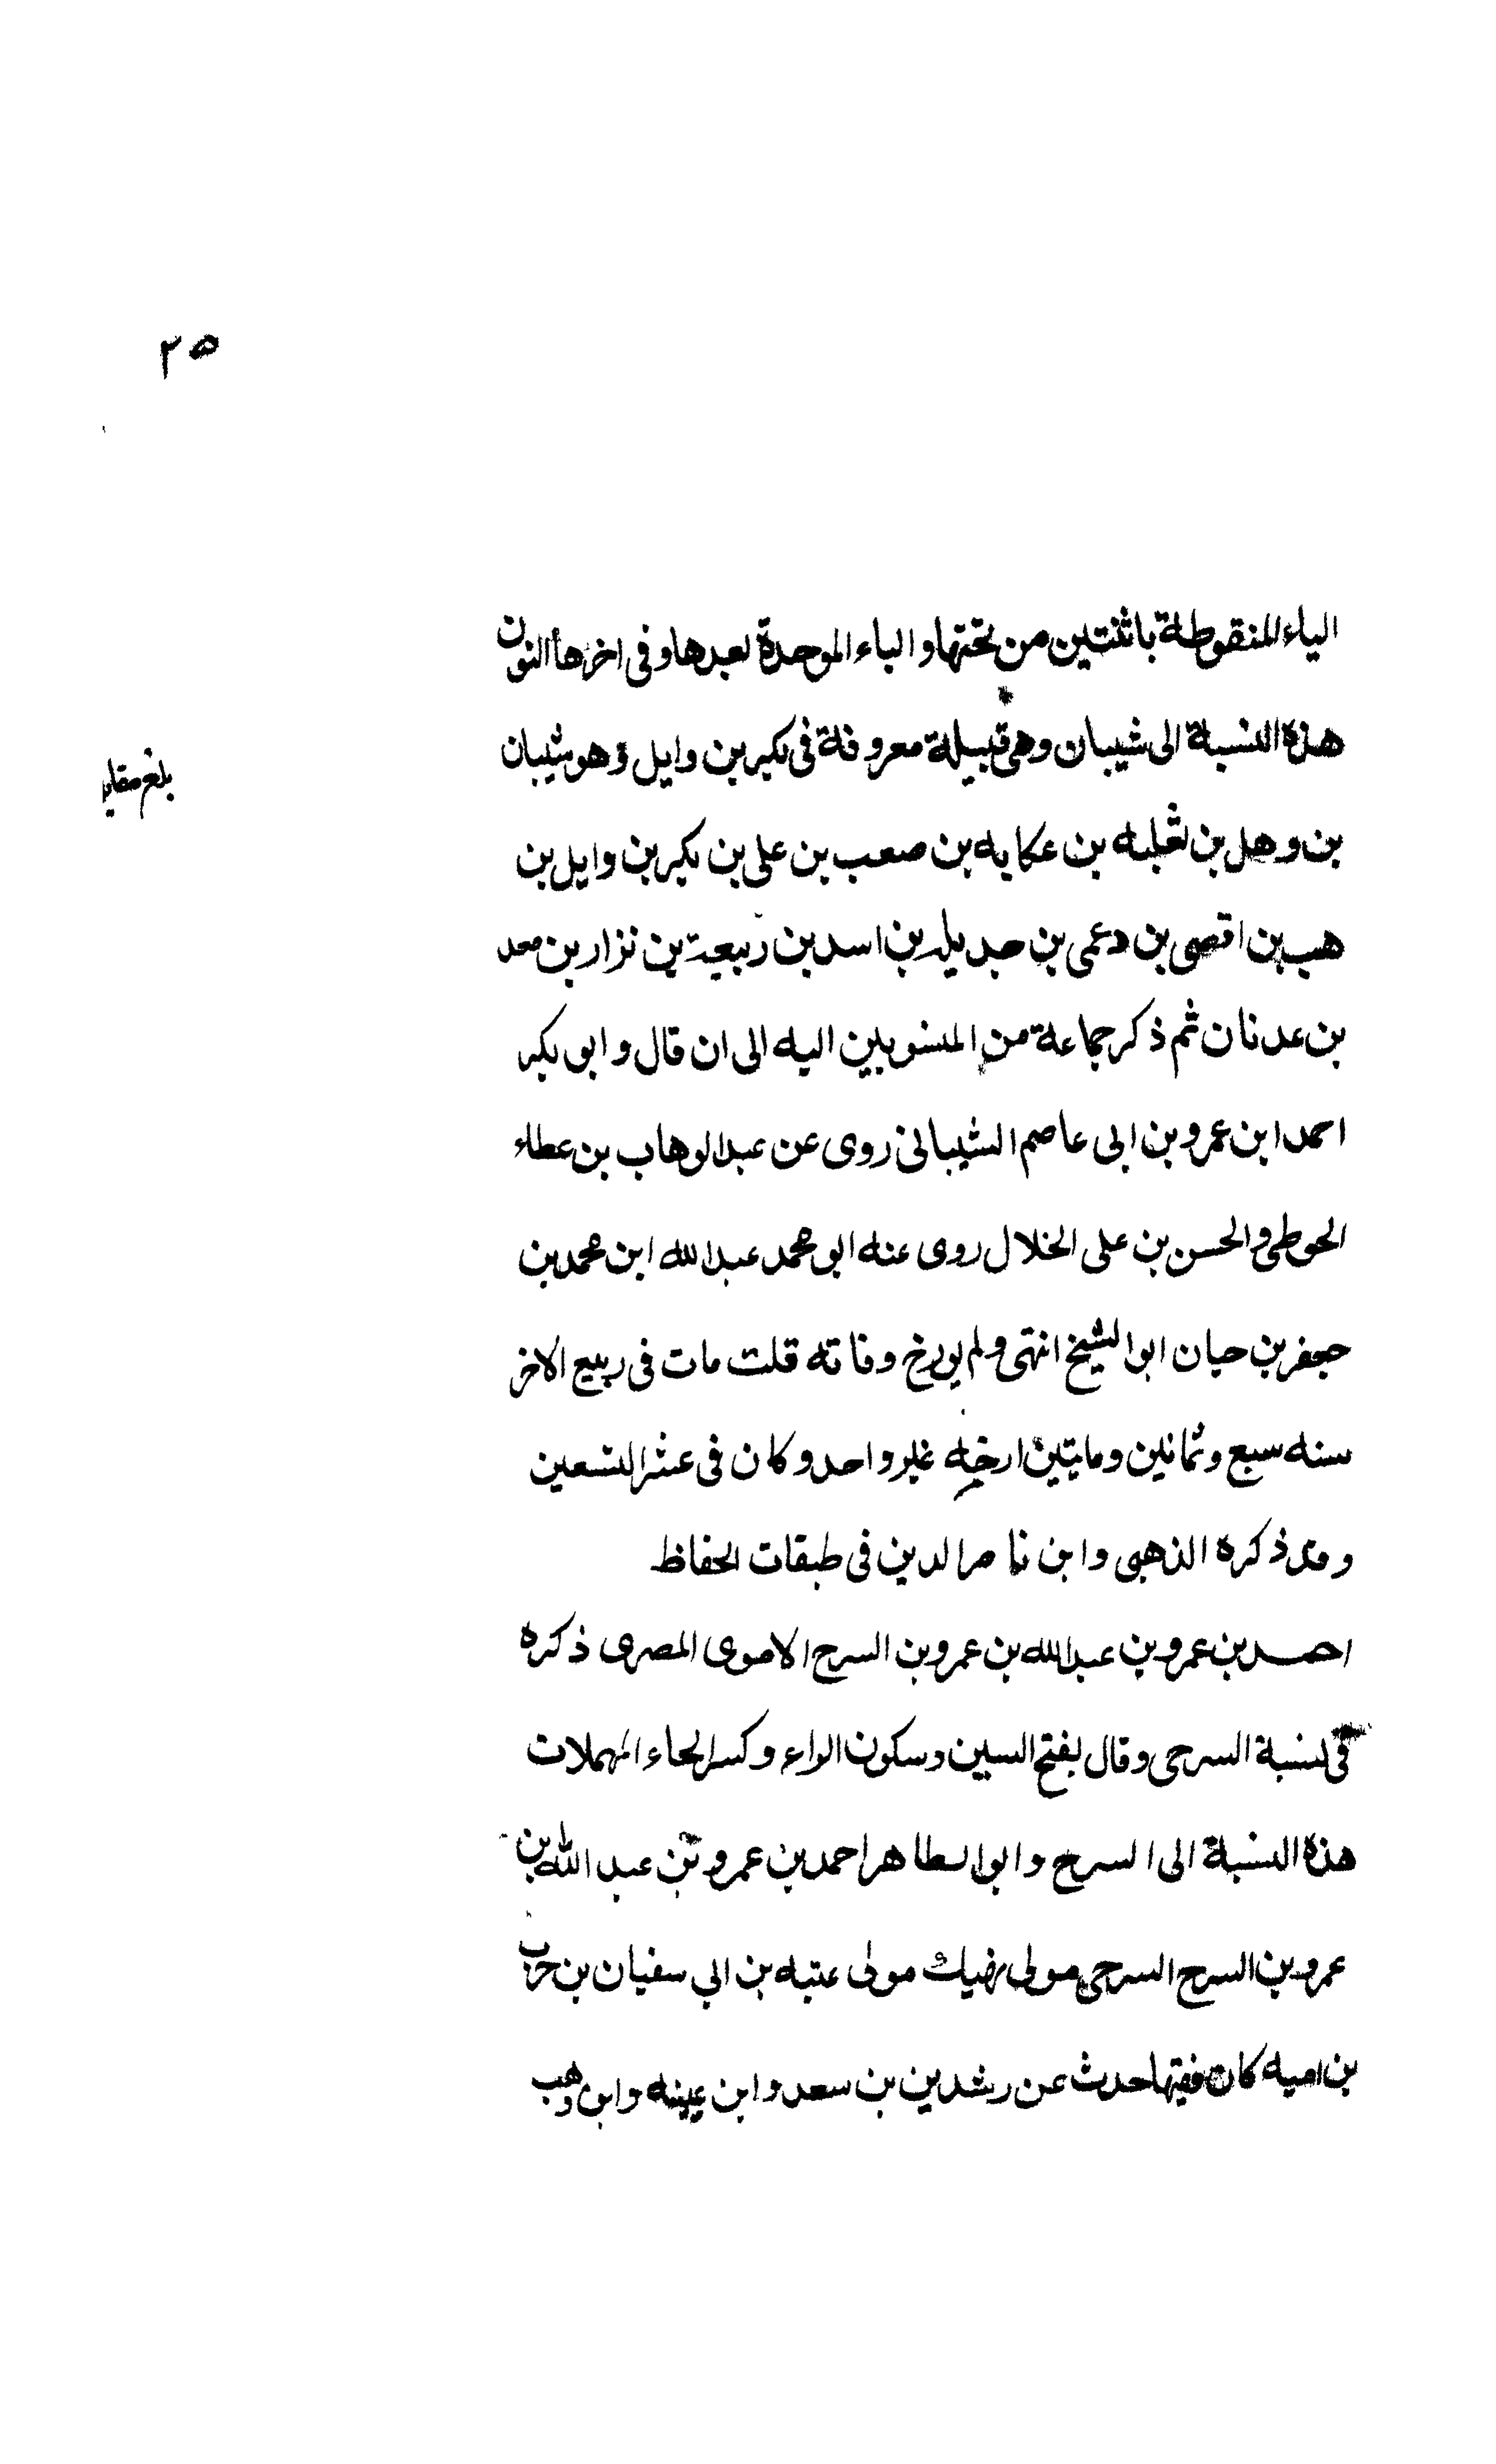 ٢٥
الياء المنقوطة باثنتين من تحتها والباء الموحدة بعدها وفى اخرها النون
هذه النسبة الى شيبان وهى قبيلة معروفة فى بكر بن وايل وهو شيبان
بلغ مقابلة
بن وهل بن ثعلبه بن عكابه بن صعب بن على بن بكر بن وايل بن
هب بن اقصى بن دعمى بن جديله بن اسد بن ربيعة بن نزار بن معد
بن عدنان ثم ذكر جماعة من المنسوبين اليه الى ان قال وابو بكر
احمد ابن عمرو بن ابى عاصم الشيبانى روى عن عبد الوهاب بن عطاء
الحوطى والحسن بن على الخلال روى عنه ابو محمد عبد الله ابن محمد بن
جعفر بن حيان ابو الشيخ انتهى ولم يورخ وفاته قلت مات فى ربيع الاخر
سنه سبع وثمانين ومايتين ارخه غير واحد وكان فى عشر التسعين
وقد ذكره الذهبى وابن ناصر الدين فى طبقات الحفاظ
احمد بن عمرو بن عبد الله بن عمرو بن السرح الاموى المصرى ذكره
فى نسبة السرحى وقال بفتح السين وسكون الراء وكسر الحاء المهملات
هذه النسبة الى السرح وابو الطاهر احمد بن عمرو بن عبد الله بن
عمرو بن السرح السرحى مولى نهيك مولى عتبه بن ابي سفيان بن حرب
بن اميه كان فقيها حدث عن رشدين بن سعد وابن عيينه وابن وهب